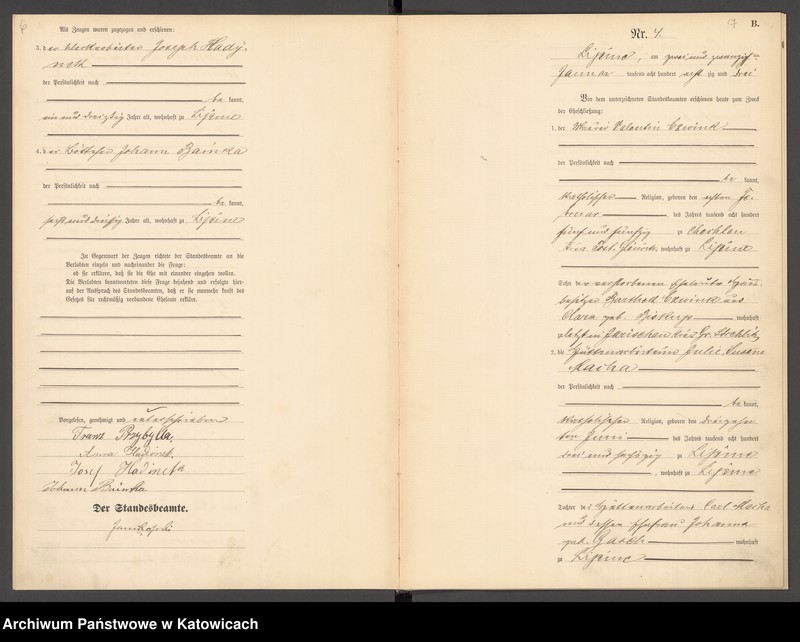 6
Als Zeugen waren zugezogen und erschienen:
3. der Werkarbeiter Joseph Hady-
neck
der Persönlichkeit nach
be kannt,
ein und dreißig Jahre alt, wohnhaft zu Lipine
4. der Johann Bainka
der Persönlichkeit nach
be kannt,
sechs und dreißig Jahre alt, wohnhaft zu Lipine
In Gegenwart der Zeugen richtete der Standesbeamte an die
Verlobten einzeln und nacheinander die Frage:
ob sie erklären, daß sie die Ehe mit einander eingehen wollen.
Die Verlobten beantworteten diese Frage bejahend und erfolgte hier-
auf der Ausspruch des Standesbeamten, daß er sie nunmehr kraft des
Gesetzes für rechtmäßig verbundene Eheleute erkläre.
Vorgelesen, genehmigt und unterschrieben
Franz Przybylla,
Anna
Josef
Johann Bainka
Der Standesbeamte.
7
B.
Nr. 4.
Lipine, am zwei und zwanzigsten
Januar tausend acht hundert acht zig und drei
Vor dem unterzeichneten Standesbeamten erschienen heute zum Zweck
der Eheschließung:
1. der Valentin Czwink
der Persönlichkeit nach
be kannt,
katholischer Religion, geboren den ersten Fe-
bruar des Jahres tausend acht hundert
fünf und fünfzig zu
Kreis Tost-Gleiwitz, wohnhaft zu Lipine
Sohn der verstorbenen Eheleute
besitzer Barthek Czwink und
Clara geb. Biskup wohnhaft
zuletzt in Jarischau Kreis Gr. Strehlitz
2. die Hüttenarbeiterin Julie Susanne
Macha
der Persönlichkeit nach
be kannt,
katholischer Religion, geboren den dreizehn-
ten Juni des Jahres tausend acht hundert
drei und sechszig zu Lipine
, wohnhaft zu Lipine
Tochter des Hüttenarbeiters Carl Macha
und dessen Ehefrau Johanna
geb. Gasch wohnhaft
zu Lipine
Archiwum Państwowe w Katowicach